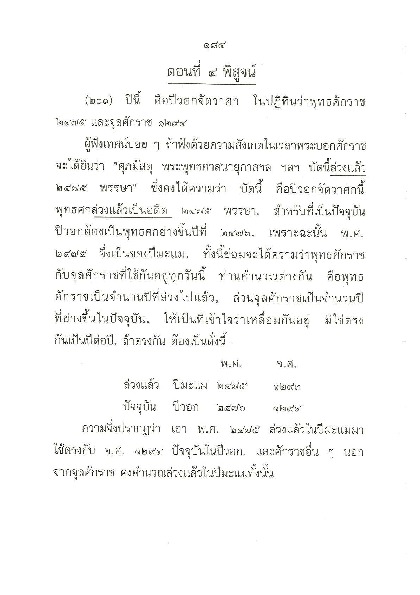 ๑๘๔
ตอนที่ ๔ พิสูจน์
(๒๐๑) ปีนี้ คือปีวอกจัตวาศก ในปฏิทินว่าพุทธศักราช
๒๔๗๕ และจุลศักราช ๑๒๙๔
ผู้ฟังเทศน์บ่อย ๆ ถ้าฟังด้วยความสังเกตในเวลาพระบอกศักราช
จะได้ยินว่า "ศุภมัสดุ พระพุทธศาสนายุกาลฯล ฯลฯ บัดนี้ล่วงแล้ว
๒๔๗๕ พรรษา" ซึ่งคงได้ความว่า บัดนี้ คือปีวอกจัตวาศกนี้
พุทธศกล่วงแล้วเป็นอดีต ๒๔๗๕ พรรษา. สำหรับที่เป็นปัจจุบัน
ปีวอกต้องเป็นพุทธศกย่างขึ้นปีที่ ๒๔๗๖. เพราะฉะนั้น พ.ศ.
๒๔๗๕ จึงเป็นของปีมะแม. ทั้งนี้ย่อมจะได้ความว่าพุทธศักราช
กับจุลศักราชที่ใช้กันอยู่ทุกวันนี้ ท่านคำนวณต่างกัน คือพุทธ
ศักราชเป็นจำนวนปีที่ล่วงไปแล้ว, ส่วนจุลศักราชเป็นจำนวนปี
ที่ย่างขึ้นในปัจจุบัน, ให้เป็นที่เข้าใจว่าเหลื่อมกันอยู่ มิใช่ตรง
กันเป็นปีต่อปี, ถ้าตรงกัน ต้องเป็นดั่งนี้
พ.ศ. จ.ศ.
ล่วงแล้ว ปีมะแม ๒๔๗๕ ๑๒๙๓
ปัจจุบัน ปีวอก ๒๔๗๖ ๑๒๙๔
ความจึงปรากฏว่า เอา พ.ศ. ๒๔๗๕ ล่วงแล้วในปีมะแมมา
ใช้ตรงกับ จ.ศ. ๑๒๙๔ ปัจจุบันในปีวอก. และศักราชอื่น ๆ นอก
จากจุลศักราช คงคำนวณล่วงแล้วในปีมะแมทั้งนั้น